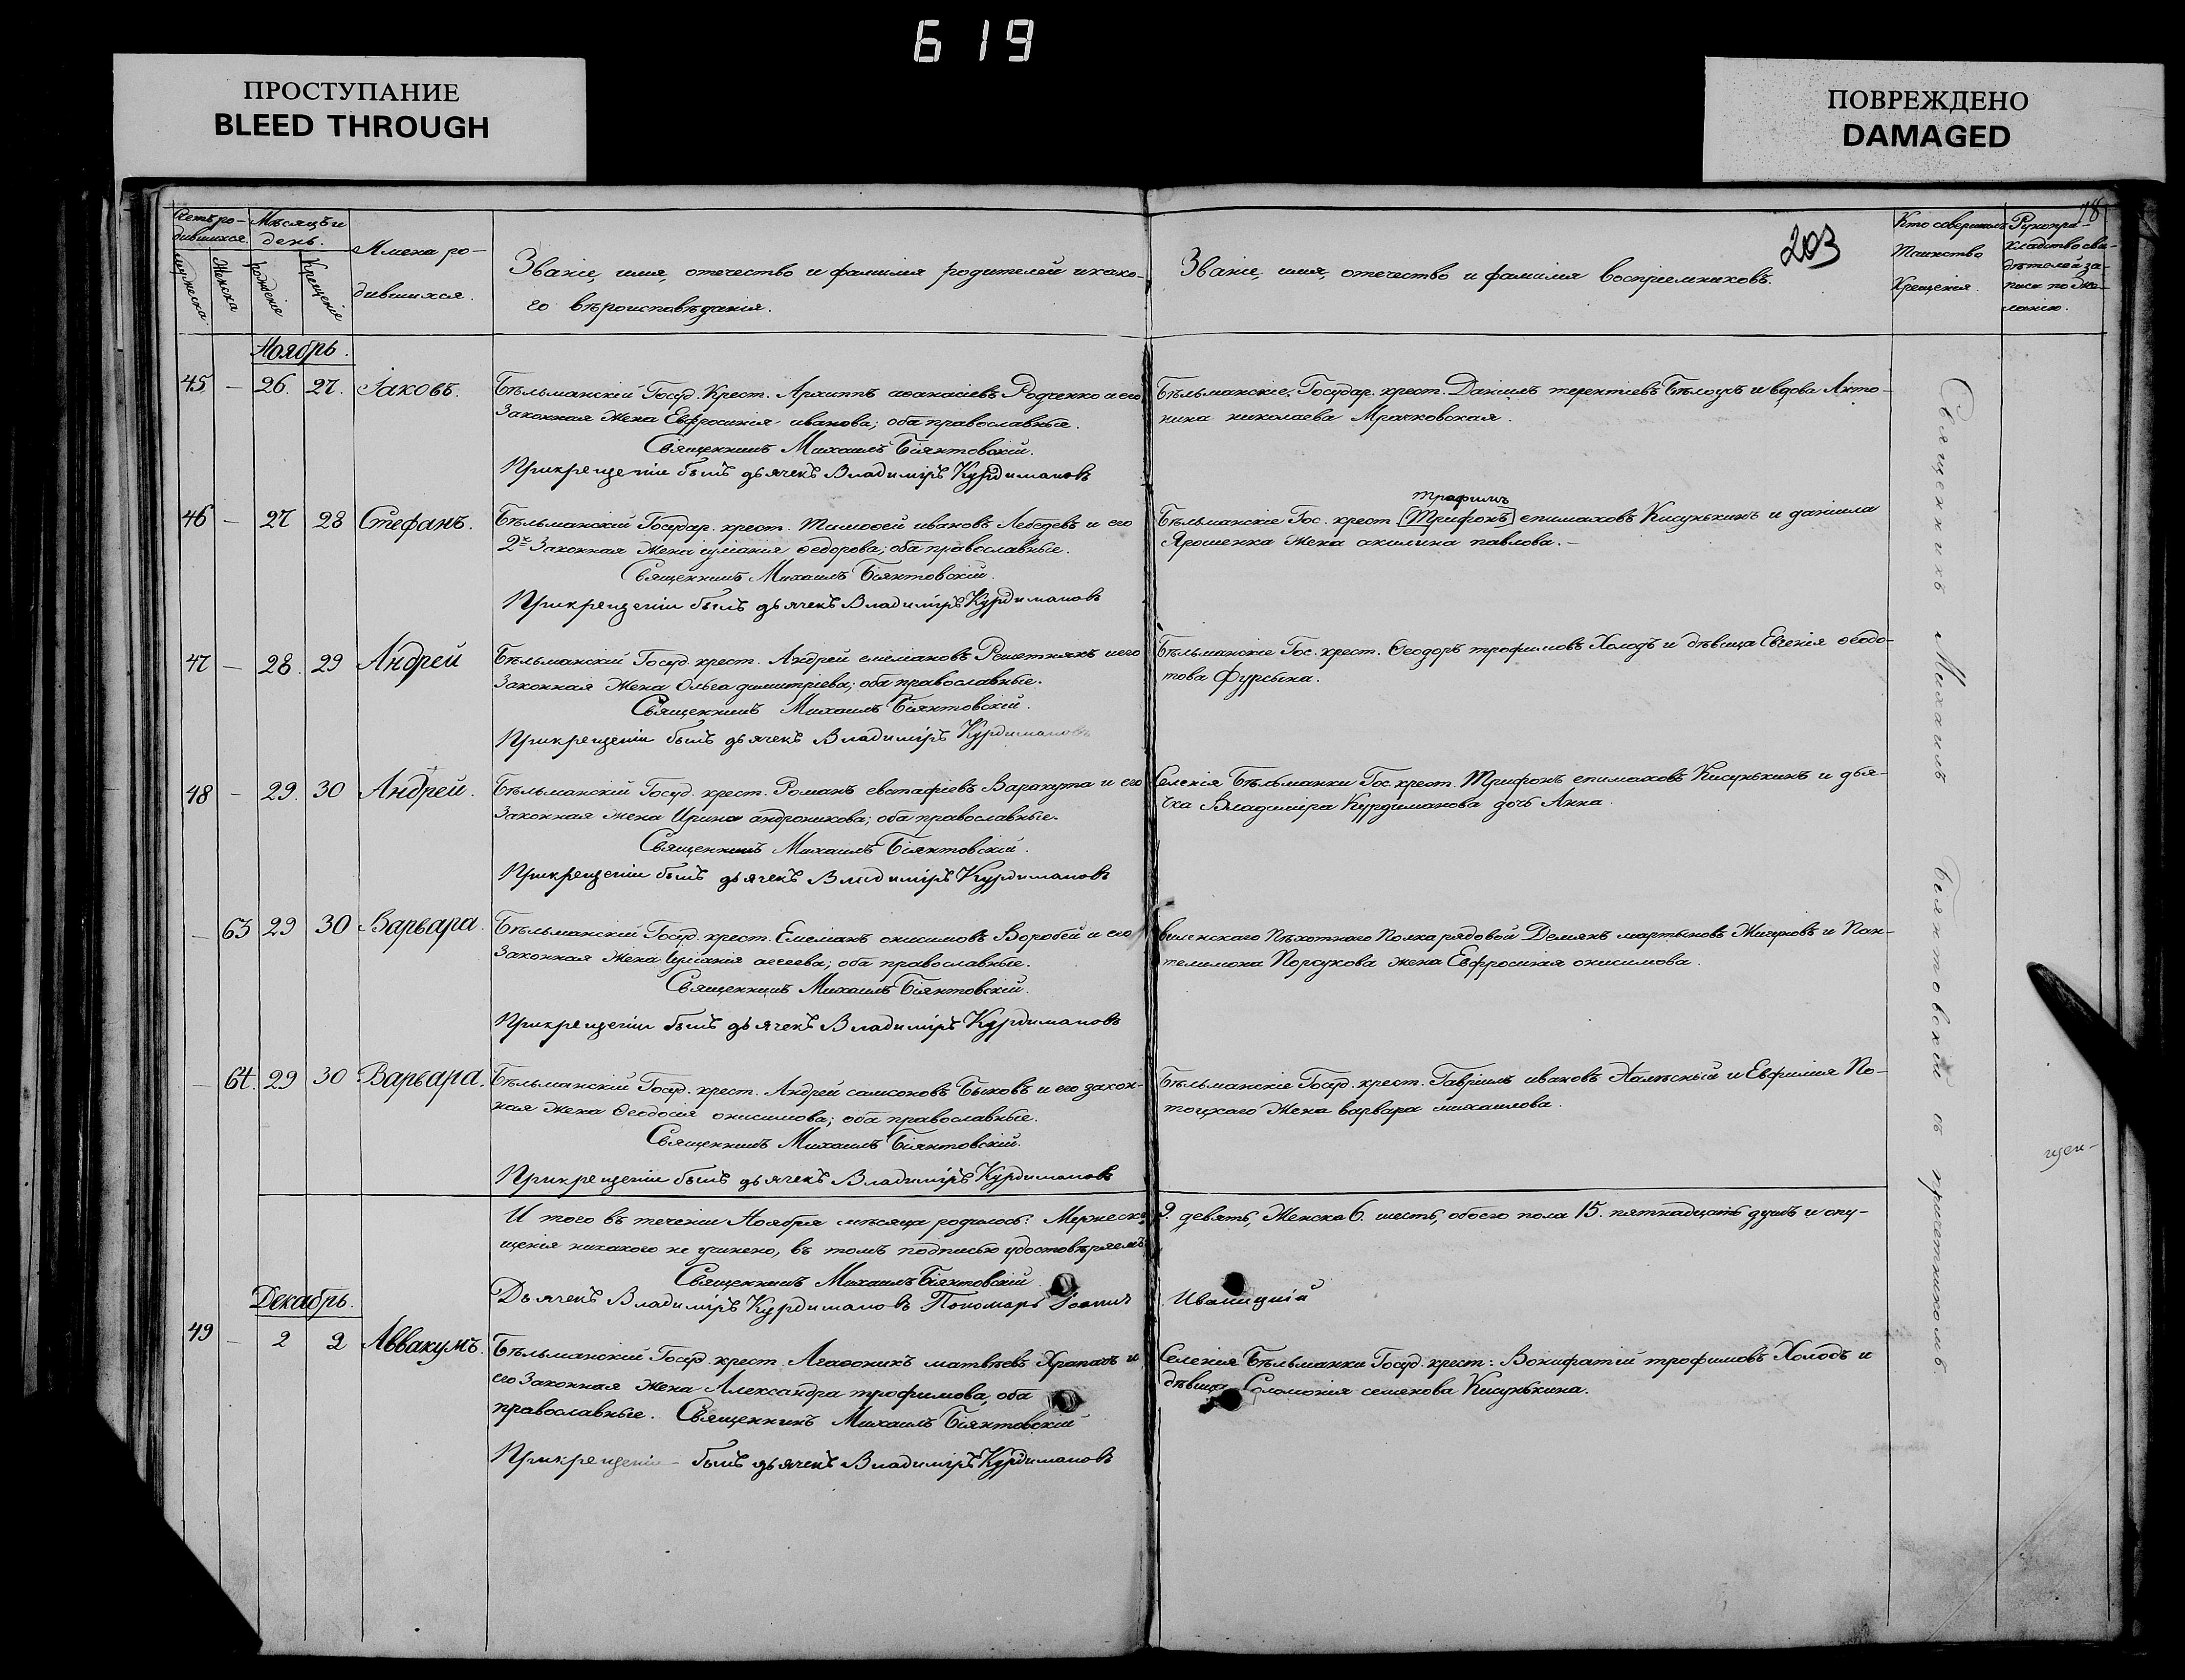 619
ПРОСТУПАНИЕ
BLEED THROUGH
ПОВРЕЖДЕНО
DAMAGED
203
78
Счетъ ро-
дившихся.
Мѣсяцъ и
день.
мужеска.
Женска
рожденіе
Крещеніе
Имена ро-
дившихся.
Званіе, имя, отечество и фамилія родителей и како-
го вѣроисповѣданія.
Званіе, имя, отечество и фамилія воспріемниковъ.
Кто совершалъ
Таинство
Крещенія.
Рукопри-
кладство сви-
дѣтелей за-
писи по же-
ланію.
Ноябрь.
45 — 26. 27. Іаковъ.
Бѣльманскій Госуд. Крест. Архиппъ аѳанасіевъ Родченко и его
Законная Жена Евфросинія иванова; оба православные.
Священникъ Михаилъ Біянтовскій.
При крещеніи былъ дьячекъ Владиміръ Курдимановъ
Бѣльманскіе Государ. крест. Даніилъ терентіевъ Бѣлоусъ и вдова Анто-
нина николаева Мрачковская.
46 — 27 28 Стефанъ.
Бѣльманскій Государ. крест. Тимоѳей ивановъ Лебедевъ и его
2я Законная Жена іуліанія ѳедорова; оба православные.
Священникъ Михаилъ Біянтовскій.
При крещеніи былъ дьячекъ Владиміръ Курдимановъ
Трофимъ
Бѣльманскіе Гос. крест [Трифонъ] епимаховъ Кисунькинъ и даніила
Ярошенка Жена акилина павлова. —
47 — 28. 29 Андрей
Бѣльманскій Госуд. крест. Андрей емеліановъ Решетнякъ и его
Законная Жена Ольга димитріева; оба православные.
Священникъ Михаилъ Біянтовскій.
При крещеніи былъ дьячекъ Владиміръ Курдимановъ
Бѣльманскіе Гос. крест. Ѳеодоръ трофимовъ Холодъ и дѣвица Евгенія ѳеодо-
това Фурсына.
48 — 29. 30 Андрей.
Бѣльманскій Госуд. крест. Романъ евстафіевъ Варакута и его
Законная жена Ирина андроникова; оба православные.
Священникъ Михаилъ Біянтовскій.
При крещеніи былъ дьячекъ Владиміръ Курдимановъ
Селенія Бѣльманки Гос. крест. Трифонъ епимаховъ Кисунькинъ и дья-
чка Владиміра Курдиманова дочь Анна.
— 63 29 30 Варвара.
Бѣльманскій Госуд. крест. Емеліанъ онисимовъ Воробей и его
Законная Жена Іуліанія агеева; оба православные.
Священникъ Михаилъ Біянтовскій.
При крещеніи былъ дьячекъ Владиміръ Курдимановъ
виленскаго Пѣхотнаго Полка рядовой Деміянъ мартыновъ Жигуновъ и Пан-
телимона Порсукова жена Евфросинія онисимова.
— 64. 29 30 Варвара.
Бѣльманскій Госуд. крест. Андрей самсоновъ Быковъ и его закон-
ная жена Ѳеодосія онисимова; оба православные.
Священникъ Михаилъ Біянтовскій.
При крещеніи былъ дьячекъ Владиміръ Курдимановъ
Бѣльманскіе Госуд. крест. Гавріилъ ивановъ и Евфимія По-
тоцкаго Жена варвара михаилова.
И того въ теченіи Ноября мѣсяца родилось: Мужеска 9. девять, Женска 6. шесть, обоего пола 15. пятнадцать душъ и опу-
щенія никакого не учинено, въ томъ подписью удостовѣряемъ
Священникъ Михаилъ Біянтовскій
Дьячекъ Владиміръ Курдимановъ Пономарь Іоаннъ Иваницкій
Декабрь.
49 — 2 2 Аввакумъ.
Бѣльманскій Госуд. крест. Агаѳоникъ матвѣевъ Храпачъ и
его Законная Жена Александра трофимова, оба
православные. Священникъ Михаилъ Біянтовскій
При крещеніи былъ дьячекъ Владиміръ Курдимановъ
Селенія Бѣльманки Госуд. крест: Вонифатій трофимовъ Холодъ и
дѣвица Соломонія семенова Кисунькина.
Священникъ Михаилъ Біянтовскій съ причетникомъ
щен-